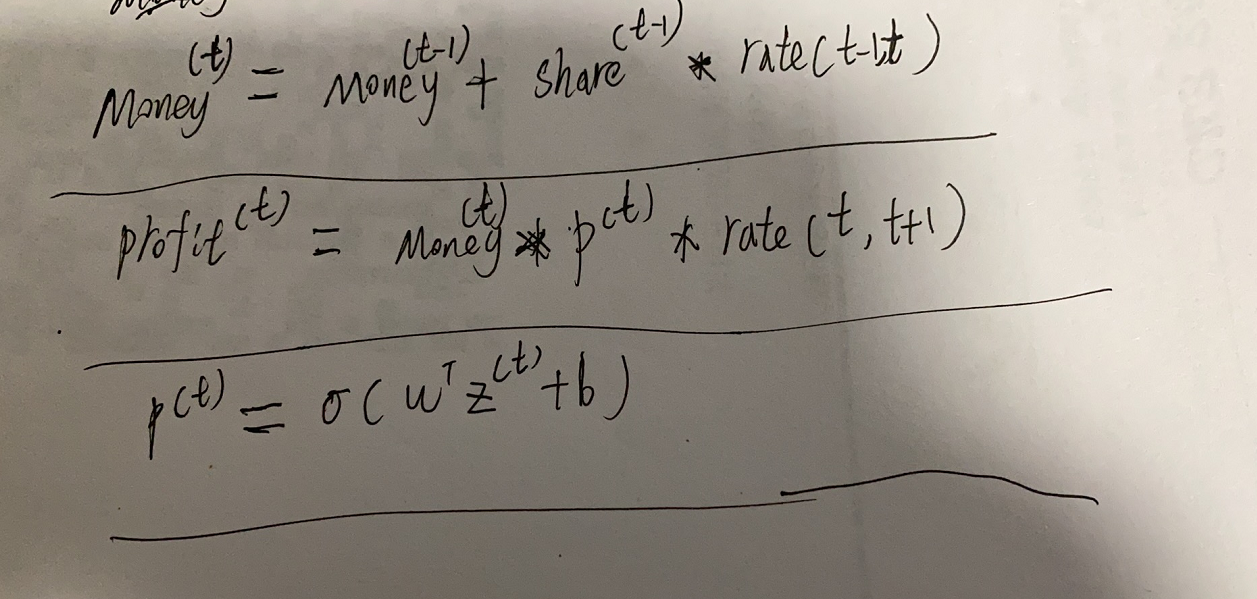 Money^(t) = Money^(t-1) + share^(t-1) * rate(t-1,t)
profit^(t) = Money^(t) * p^(t) * rate(t, t+1)
p^(t) = σ(w^T z^(t) + b)